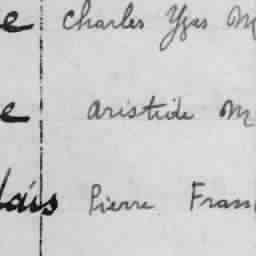 e Charles Yves M
e Aristide M
lais Pierre Fran